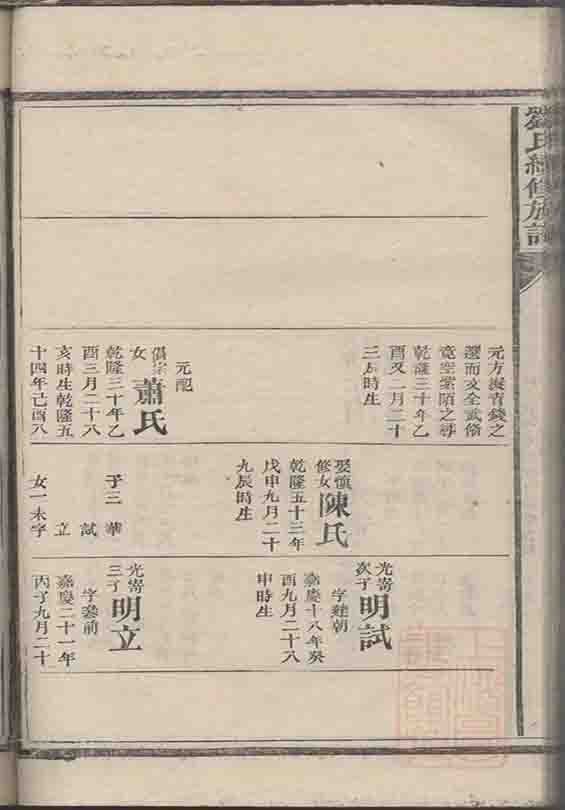 劉氏續修族譜
元方擬青錢之
選而文全武備
竟空紫陌之尋
乾隆三十年乙
酉又二月二十
三辰時生
元配
女蕭氏
乾隆三十年乙
酉三月二十八
亥時生乾隆五
十四年己酉八
娶慎修女陳氏
乾隆五十三年
戊申九月二十
九辰時生
子三 華
試
立
女一未字
光寄次子明試
字建朝
嘉慶十八年癸
酉九月二十八
申時生
光寄三子明立
字參前
嘉慶二十一年
丙子九月二十